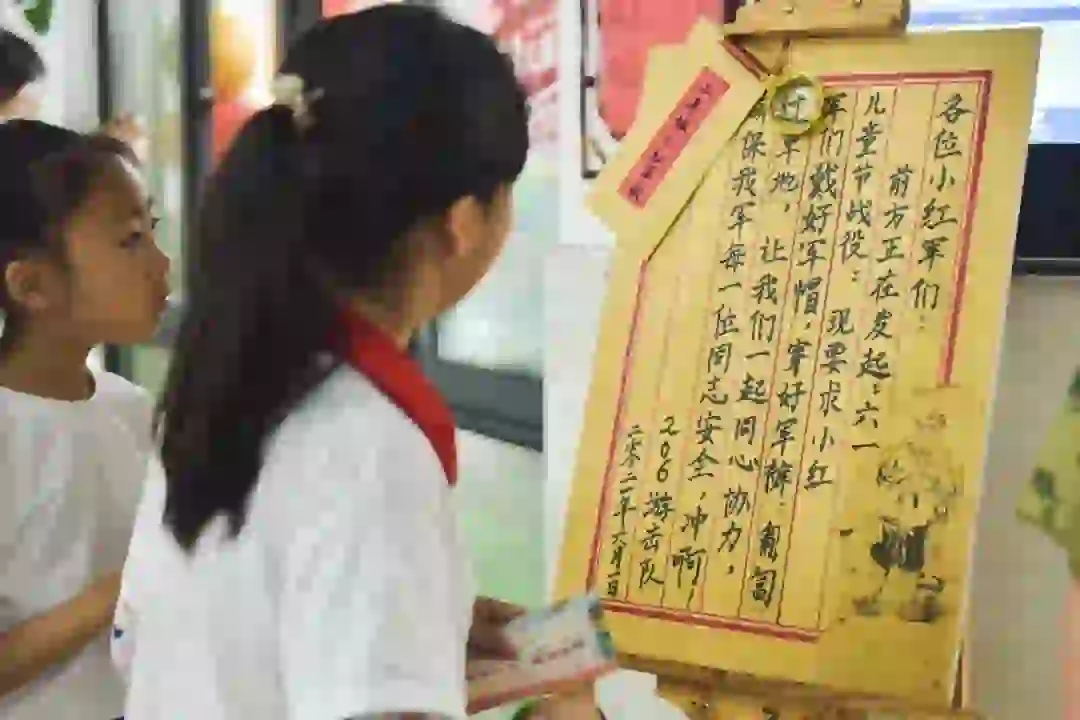 各位小红军们：
前方正在发起：六一
儿童节战役：现要求小红
军们戴好军帽，穿好军鞋：匍匐
过旱地，让我们一起同心协力，
保我军每一位同志安全，冲啊，
206游击队
二零二一年六月一日